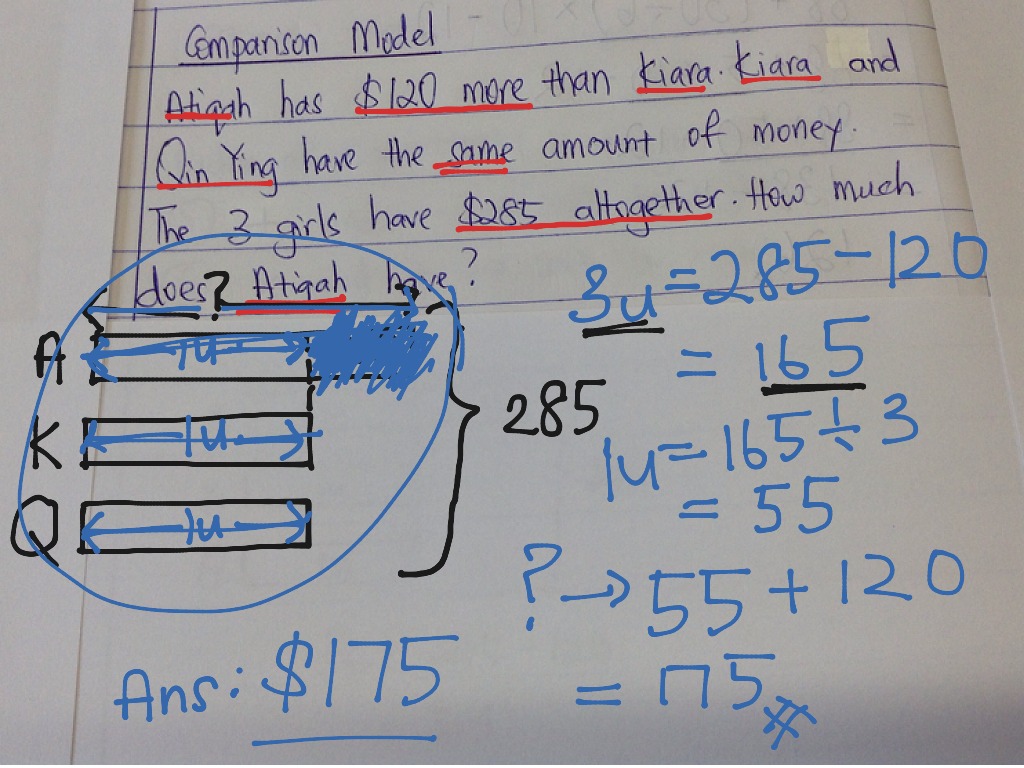 Comparison Model
Atiqah has $120 more than Kiara. Kiara and
Qin Ying have the same amount of money.
The 3 girls have $285 altogether. How much
does Atiqah have?
?
A 1u
K 1u
Q 1u
285
3u = 285 - 120
= 165
1u = 165 ÷ 3
= 55
? → 55 + 120
= 175
Ans: $175